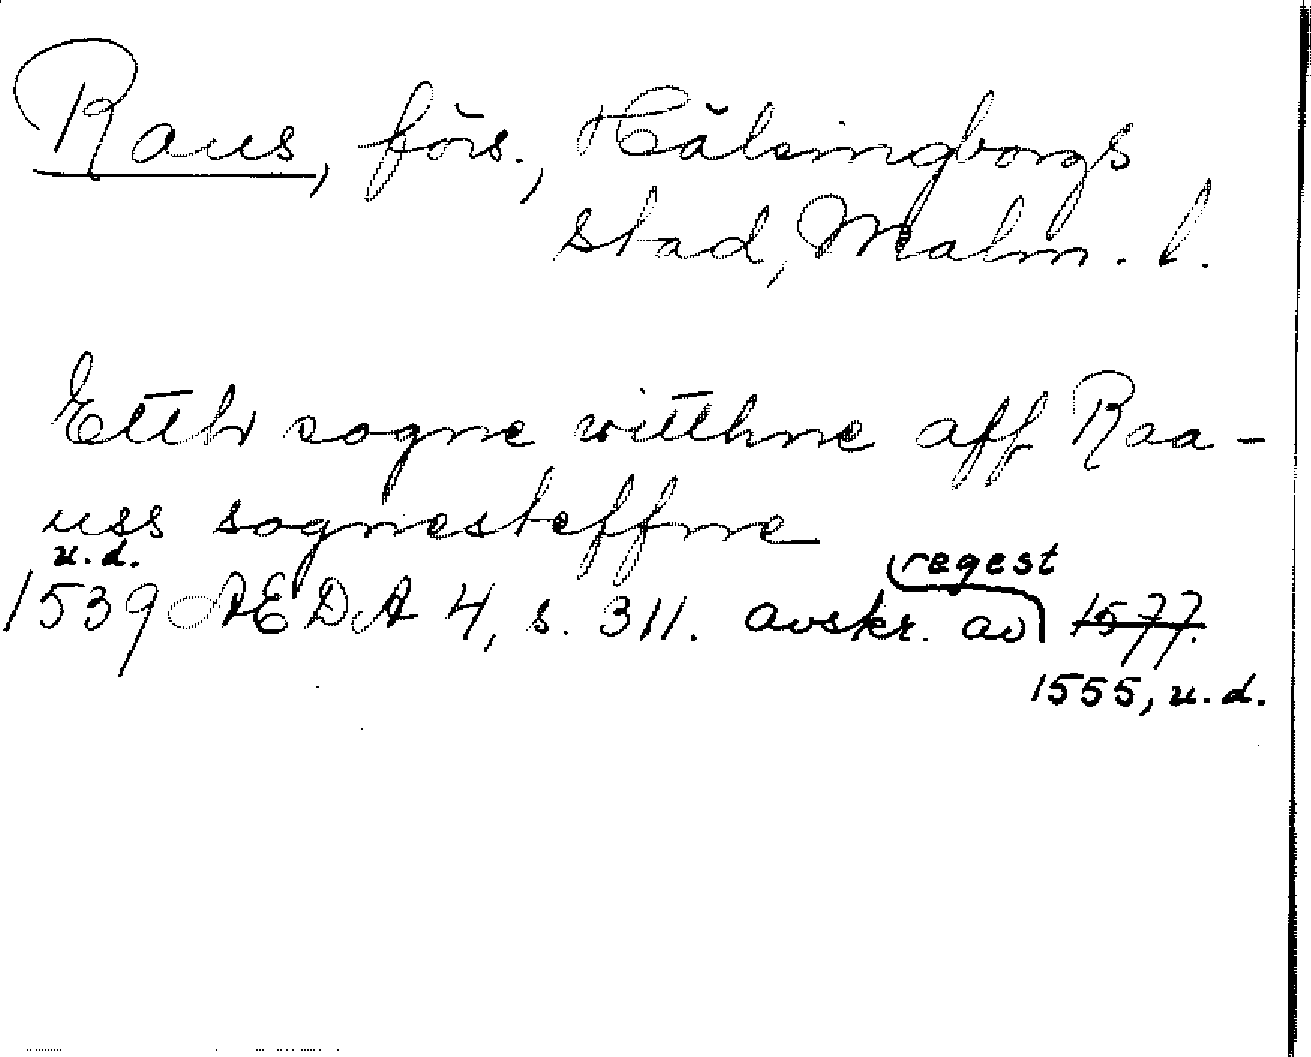 Raus, förs., Hälsingborgs
stad, Malm. l.
Etth sogne witthne aff Raa-
uss sognesteffne
u.d.
1539 ÆDA 4, s. 311. avskr. av regest 1577.
1555, u.d.